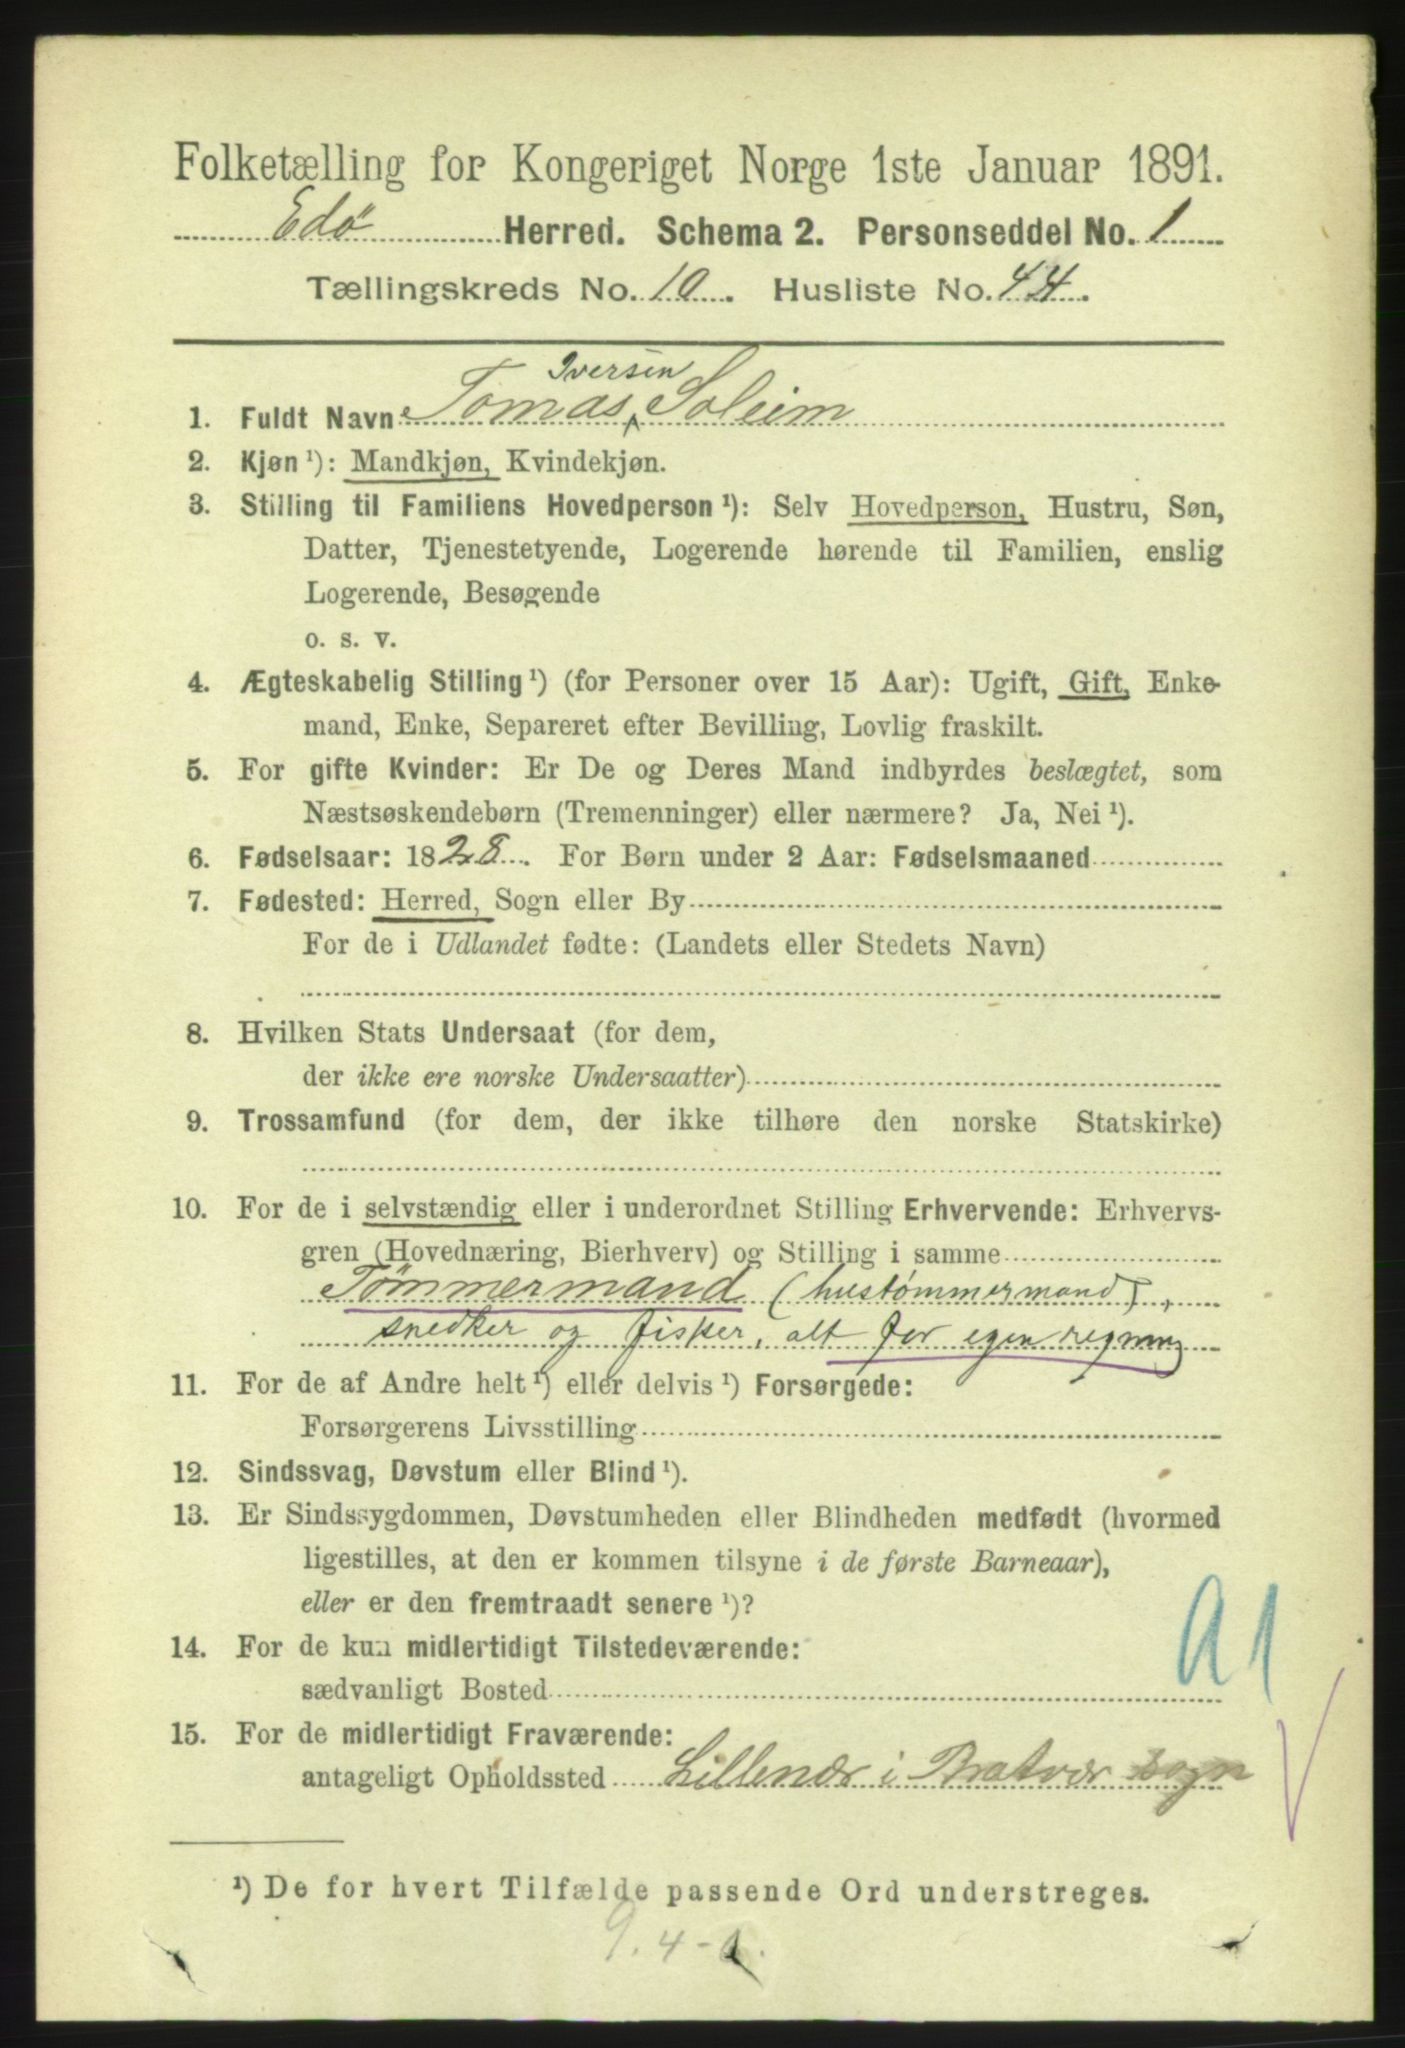 Folketælling for Kongeriget Norge 1ste Januar 1891.
Edø Herred. Schema 2. Personseddel No. 1
Tællingskreds No. 10. Husliste No. 44.
Iversen
1. Fuldt Navn Tomas Soleim
2. Kjøn ¹): Mandkjøn, Kvindekjøn.
3. Stilling til Familiens Hovedperson ¹): Selv Hovedperson, Hustru, Søn,
Datter, Tjenestetyende, Logerende hørende til Familien, enslig
Logerende, Besøgende
o. s. v.
4. Ægteskabelig Stilling ¹) (for Personer over 15 Aar): Ugift, Gift, Enke-
mand, Enke, Separeret efter Bevilling, Lovlig fraskilt.
5. For gifte Kvinder: Er De og Deres Mand indbyrdes beslægtet, som
Næstsøskendebørn (Tremenninger) eller nærmere? Ja, Nei ¹).
6. Fødselsaar: 1828. For Børn under 2 Aar: Fødselsmaaned
7. Fødested: Herred, Sogn eller By
For de i Udlandet fødte: (Landets eller Stedets Navn)
8. Hvilken Stats Undersaat (for dem,
der ikke ere norske Undersaatter)
9. Trossamfund (for dem, der ikke tilhøre den norske Statskirke)
10. For de i selvstændig eller i underordnet Stilling Erhvervende: Erhvervs-
gren (Hovednæring, Bierhverv) og Stilling i samme
Tømmermand (hustømmermand),
snedker og fisker, alt for egen regning
11. For de af Andre helt ¹) eller delvis ¹) Forsørgede:
Forsørgerens Livsstilling
12. Sindssvag, Døvstum eller Blind ¹).
13. Er Sindssygdommen, Døvstumheden eller Blindheden medfødt (hvormed
ligestilles, at den er kommen tilsyne i de første Barneaar),
eller er den fremtraadt senere ¹)?
14. For de kun midlertidigt Tilstedeværende:
sædvanligt Bosted
a1
15. For de midlertidigt Fraværende:
antageligt Opholdssted Lillenær i Bratvær sogn
¹) De for hvert Tilfælde passende Ord understreges.